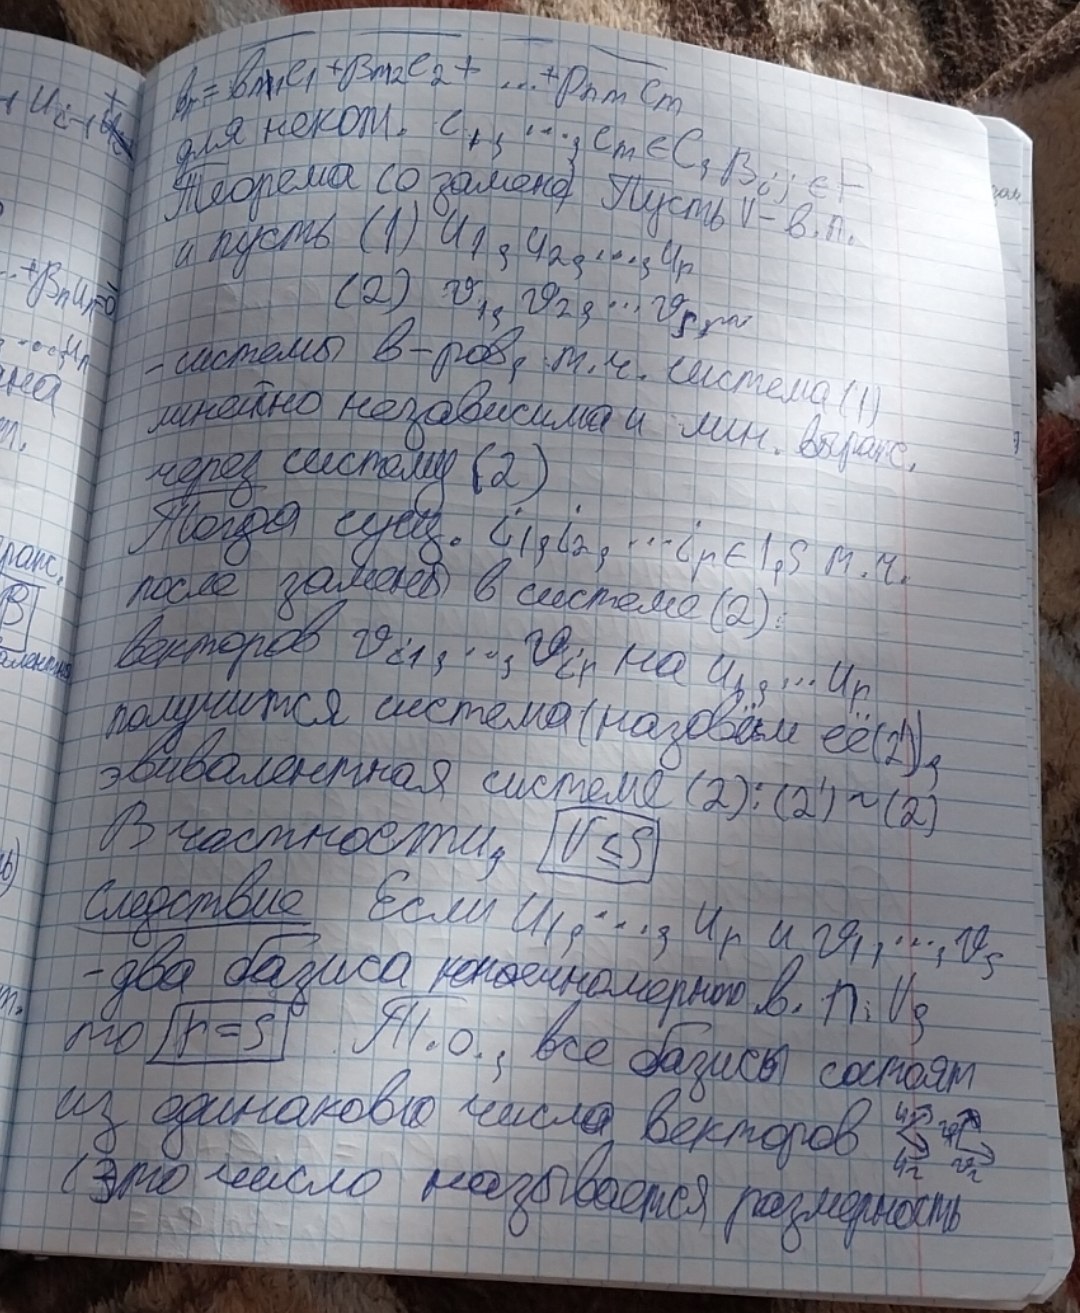 bᵣ = βₘ₁c₁ + βₘ₂c₂ + ... + βₙₘcₘ
для некот. c₁, ..., cₘ ∈ C, βᵢⱼ ∈ F
Теорема (о замене) Пусть V - в.п.
и пусть (1) u₁, u₂, ..., uᵣ
(2) v₁, v₂, ... vₛ
- системы в-ров, т.ч. система (1)
линейно независима и лин. выраж.
через систему (2)
Тогда сущ. i₁, i₂, ... iᵣ ∈ 1,s т.ч.
после замены в системе (2):
векторов vᵢ₁, ..., vᵢᵣ на u₁, ... uᵣ
получится система (назовём её (2'),
эвивалентная системе (2): (2') ~ (2)
В частности, r ≤ s
Следствие Если u₁, ..., uᵣ и v₁, ..., vₛ
- два базиса конечномерного в. п. V,
то r = s Т.о., все базисы состоят
из одинаково числа векторов
(это число называется размерность